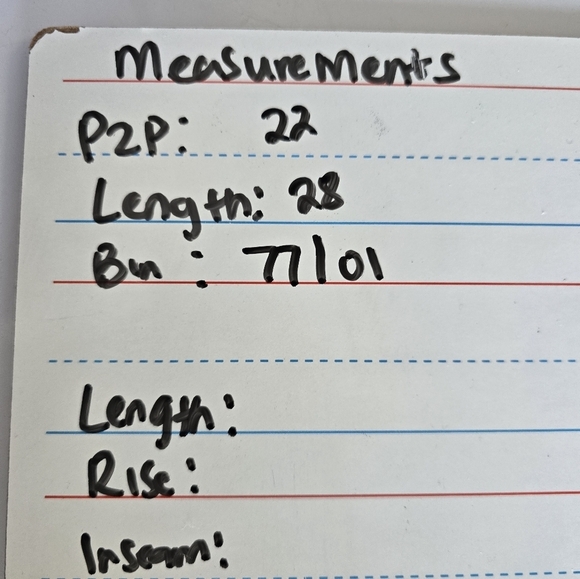 Measurements
P2P: 22
Length: 28
Bin: 77/01
Length:
Rise:
Inseam: